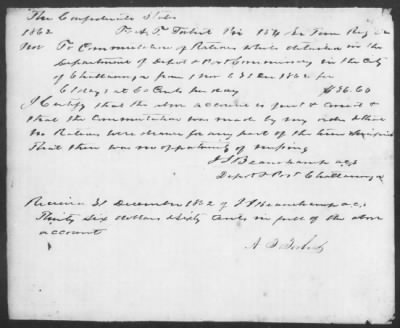 The Confederate States
1862 To A. T. Tarbit Pvt 154 Sr Tenn Reg Dr
Nov To Commutation of Rations while detailed in the
Department of Depot & Post Commissary in the City
of Chattanooga from 1 Nov to 31 Dec 1862 for
61 days at 60 Cents per day $36.60
I Certify that the above account is just & correct &
that the Commutation was made by my order & that
No Rations were drawn for any part of the time
That there was no opportunity of messing
J S Beauchamp acs
Depot & Post Chattanooga
Received 31 December 1862 of J S Beauchamp acs
Thirty Six dollars & Sixty Cents in full of the above
account
A. T.